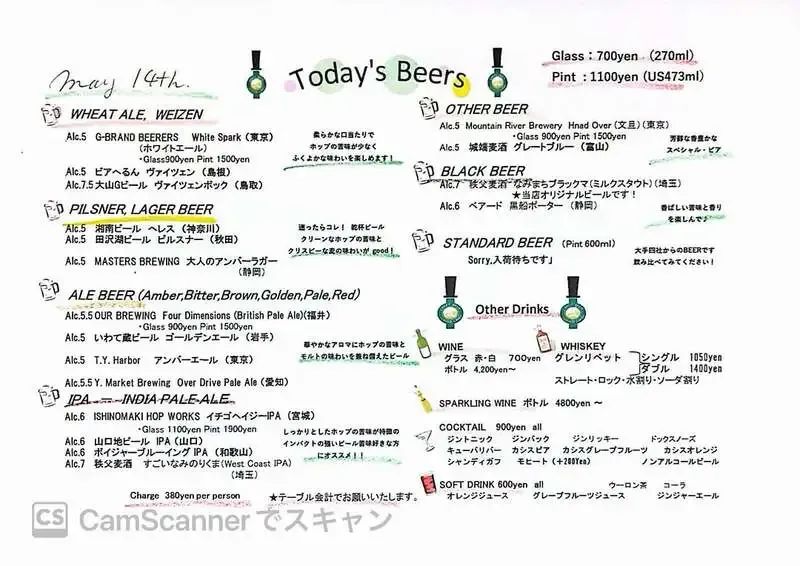 May 14th.
Today's Beers
Glass：700yen （270ml）
Pint ：1100yen（US473ml）
WHEAT ALE, WEIZEN
Alc.5 G-BRAND BEERERS White Spark（東京）
（ホワイトエール）
・Glass900yen Pint 1500yen
Alc.5 ビアへるん ヴァイツェン（島根）
Alc.7.5大山Gビール ヴァイツェンボック（鳥取）
柔らかな口当たりで
ホップの苦味が少なく
ふくよかな味わいを楽しめます！
PILSNER, LAGER BEER
Alc.5 湘南ビール ヘレス（神奈川）
Alc.5 田沢湖ビール ピルスナー（秋田）
Alc.5 MASTERS BREWING 大人のアンバーラガー
（静岡）
迷ったらコレ！ 乾杯ビール
クリーンなホップの苦味と
クリスピーな麦の味わいが good！
ALE BEER（Amber,Bitter,Brown,Golden,Pale,Red）
Alc.5.5 OUR BREWING Four Dimensions（British Pale Ale）（福井）
・Glass 900yen Pint 1500yen
Alc.5 いわて蔵ビール ゴールデンエール（岩手）
Alc.5 T.Y. Harbor アンバーエール（東京）
Alc.5.5 Y. Market Brewing Over Drive Pale Ale（愛知）
華やかなアロマにホップの苦味と
モルトの味わいを兼ね備えたビール
IPA ＝ INDIA PALE ALE
Alc.6 ISHINOMAKI HOP WORKS イチゴヘイジーIPA（宮城）
・Glass 1100yen Pint 1900yen
Alc.6 山口地ビール IPA（山口）
Alc.6 ボイジャーブルーイング IPA（和歌山）
Alc.7 秩父麦酒 すごいなみのりくま（West Coast IPA）
（埼玉）
しっかりとしたホップの苦味が特徴の
インパクトの強いビール苦味好きな方
にオススメ！！
Charge 380yen per person
★テーブル会計でお願いいたします。
OTHER BEER
Alc.5 Mountain River Brewery Hnad Over（文旦）（東京）
・Glass 900yen Pint 1500yen
Alc.5 城端麦酒 グレートブルー（富山）
芳醇な香豊かな
スペシャル・ビア
BLACK BEER
Alc.7 秩父麦酒 なみまちブラックマ（ミルクスタウト）（埼玉）
★当店オリジナルビールです！
Alc.6 ベアード 黒船ポーター（静岡）
香ばしい苦味と香り
を楽しんで♪
STANDARD BEER （Pint 600ml）
Sorry,入荷待ちです」
大手四社からのBEERです
飲み比べてみてください！
Other Drinks
WINE
グラス 赤・白 700yen
ボトル 4,200yen～
WHISKEY
グレンリベット シングル 1050yen
ダブル 1400yen
ストレート・ロック・水割り・ソーダ割り
SPARKLING WINE ボトル 4800yen ～
COCKTAIL 900yen all
ジントニック ジンバック ジンリッキー ドックスノーズ
キューバリバー カシスビア カシスグレープフルーツ カシスオレンジ
シャンディガフ モヒート（＋200Yen） ノンアルコールビール
SOFT DRINK 600yen all ウーロン茶 コーラ
オレンジジュース グレープフルーツジュース ジンジャーエール
CS CamScanner でスキャン